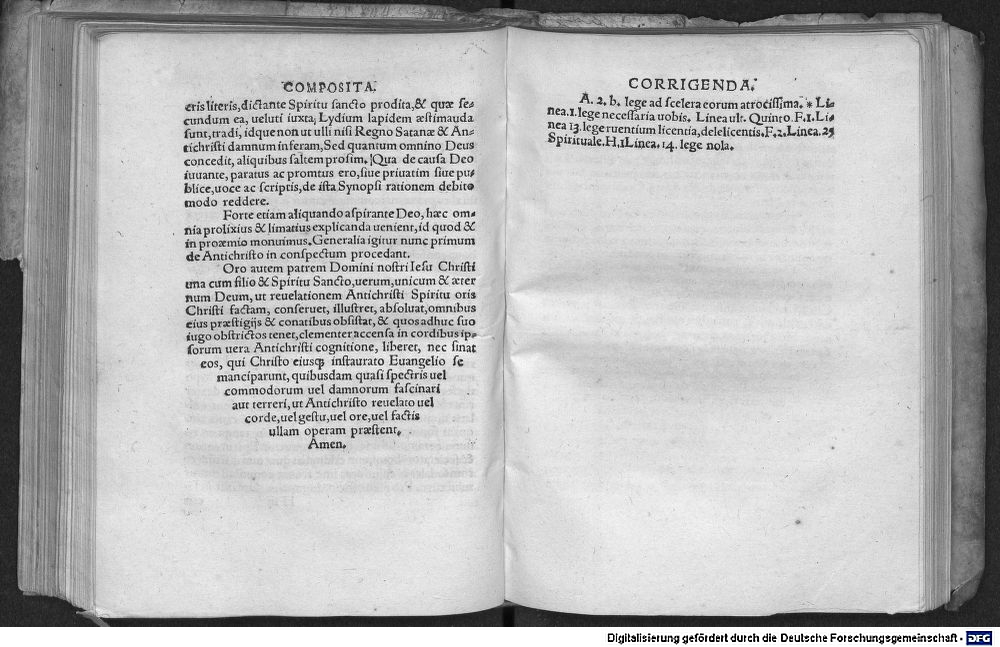 COMPOSITA.
cris literis, dictante Spiritu sancto prodita, & quæ se-
cundum ea, ueluti iuxta, Lydium lapidem æstimauda
sunt, tradi, idque non ut ulli nisi Regno Satanæ & An-
tichristi damnum inferam, Sed quantum omnino Deus
concedit, aliquibus saltem prosim. Qua de causa Deo
iuuante, paratus ac promtus ero, siue priuatim siue pu-
blice, uoce ac scriptis, de ista Synopsi rationem debito
modo reddere.
Forte etiam aliquando aspirante Deo, hæc om-
nia prolixius & limatius explicanda uenient, id quod &
in proæmio monuimus. Generalia igitur nunc primum
de Antichristo in conspectum procedant.
Oro autem patrem Domini nostri Iesu Christi
una cum filio & Spiritu Sancto, uerum, unicum & æter
num Deum, ut reuelationem Antichristi Spiritu oris
Christi factam, conseruet, illustret, absoluat, omnibus
eius præstigijs & conatibus obsistat, & quos adhuc suo
iugo obstrictos tenet, clementer accensa in cordibus ip-
sorum uera Antichristi cognitione, liberet, nec sinat
eos, qui Christo eiusq; instaurato Euangelio se
manciparunt, quibusdam quasi spectris uel
commodorum uel damnorum fascinari
aut terreri, ut Antichristo reuelato uel
corde, uel gestu, uel ore, uel factis
ullam operam præstent.
Amen.
CORRIGENDA.
A. 2. b. lege ad scelera eorum atrocissima. * Li-
nea. 1. lege necessaria uobis. Linea ult. Quinto. F. 1. Li-
nea 13. lege ruentium licentia, dele licentis. F. 2. Linea. 25
Spirituale. H. 1 Linea. 14. lege nola.
Digitalisierung gefördert durch die Deutsche Forschungsgemeinschaft - DFG